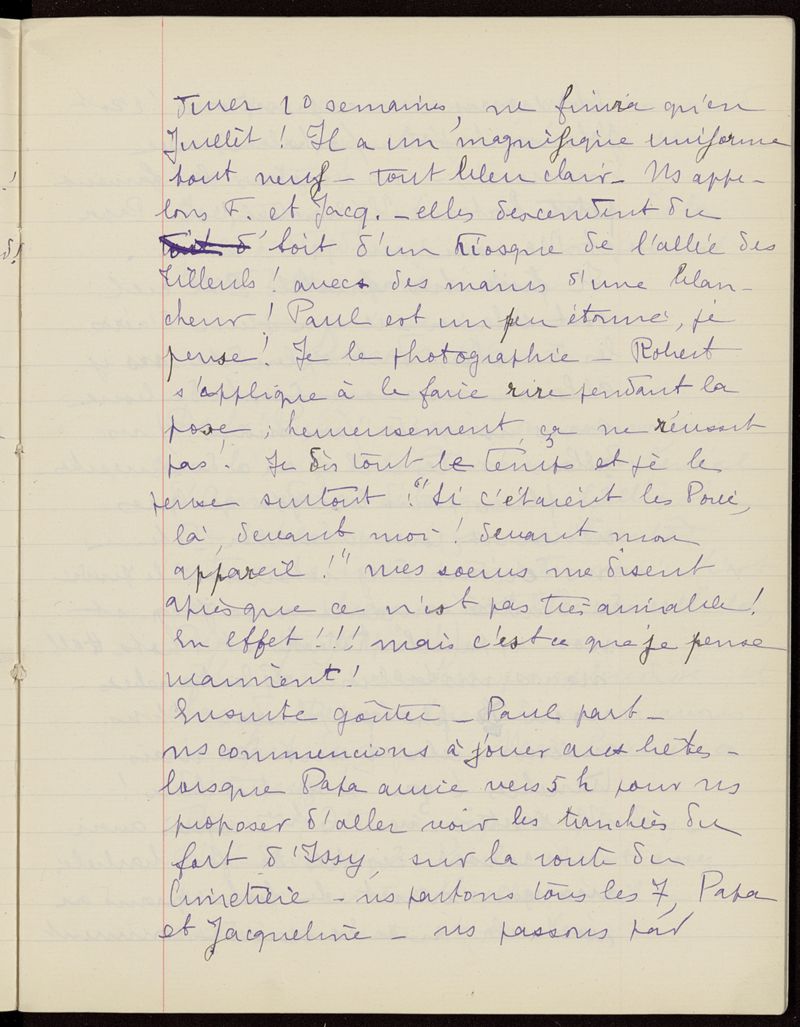 durer 10 semaines, ne finira qu'en
Juillet ! Il a un magnifique uniforme
tout neuf – tout bleu clair – Ns appe-
lons F. et Jacq. – elles descendent du
toit d' toit d'un kiosque de l'allée des
Tilleuls ! avec des mains d'une blan-
cheur ! Paul est un peu étonné, je
pense ! Je le photographie – Robert
s'applique à le faire rire pendant la
pose ; heureusement ça ne réussit
pas ! Je dis tout le temps et je le
pense surtout : "Si c'étaient les
là, devant moi ! devant mon
appareil !" mes soeurs me disent
après que ce n'est pas très aimable !
En effet !!! mais c'est ce que je pense
vraiment !
Ensuite goûter – Paul part –
ns commencions à jouer aux bêtes –
lorsque Papa arrive vers 5 h pour ns
proposer d'aller voir les tranchées du
fort d'Issy, sur la route du
Cimetière – ns partons tous les 7, Papa
et Jacqueline – ns passons par